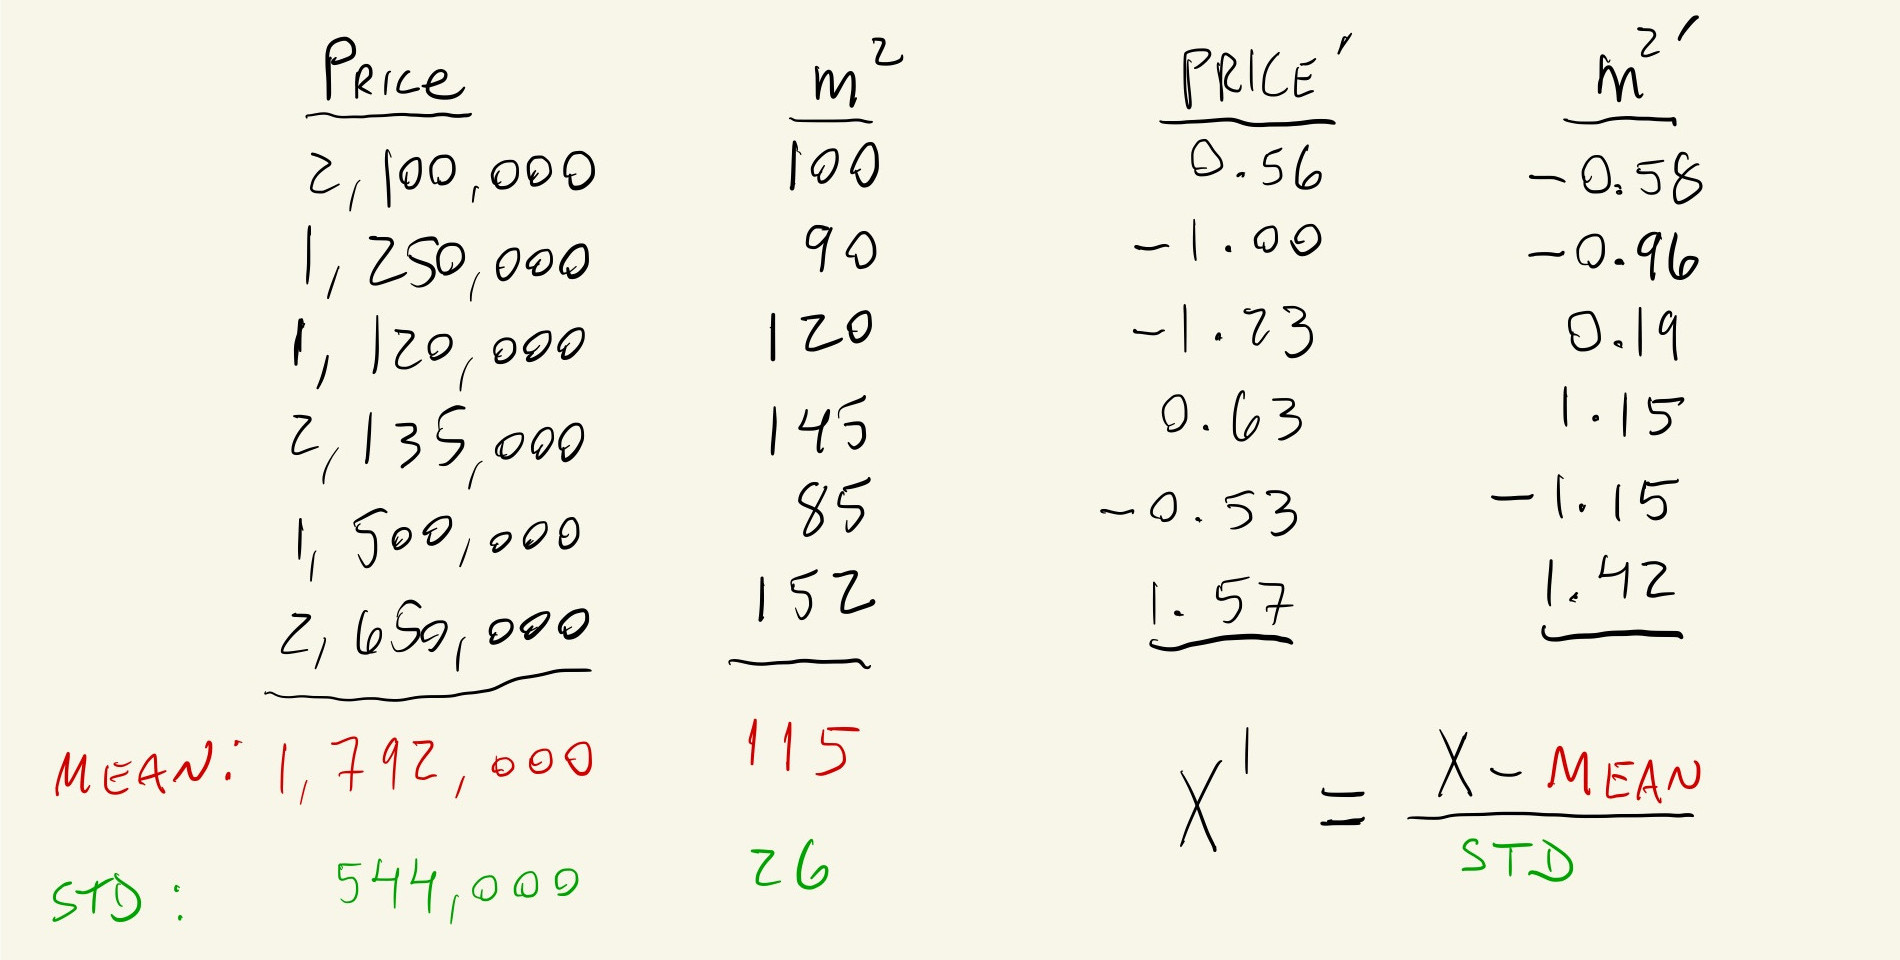 Price m² PRICE' m²'
2,100,000 100 0.56 -0.58
1,250,000 90 -1.00 -0.96
1,120,000 120 -1.23 0.19
2,135,000 145 0.63 1.15
1,500,000 85 -0.53 -1.15
2,650,000 152 1.57 1.42
MEAN: 1,792,000 115 X' = X - MEAN
STD: 544,000 26 STD